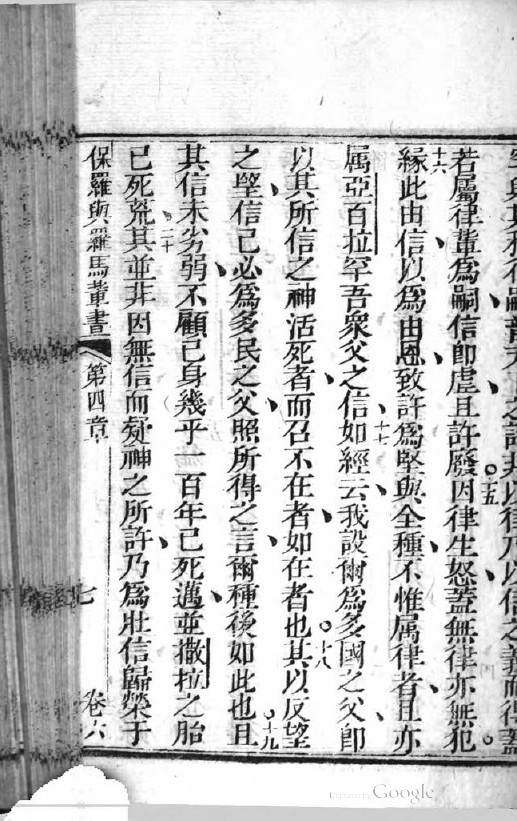 之許非以律乃以信之義而得蓋
若屬律輩為嗣信即虛且許廢十五因律生怒蓋無律亦無犯
十六緣此由信以為由恩致許為堅與全種不惟属律者且亦
属亞百拉罕吾衆父之信十七如經云我設爾為多國之父即
以其所信之神活死者而召不在者如在者也十八其以反望
之堅信己必為多民之父照所得之言爾種後如此也十九且
其信未劣弱不顧己身幾乎一百年已死邁並撒拉之胎
已死荒二十其並非因無信而疑神之所許乃為壯信歸榮于
保羅與羅馬輩書 第四章 七 卷六
Digitized by Google